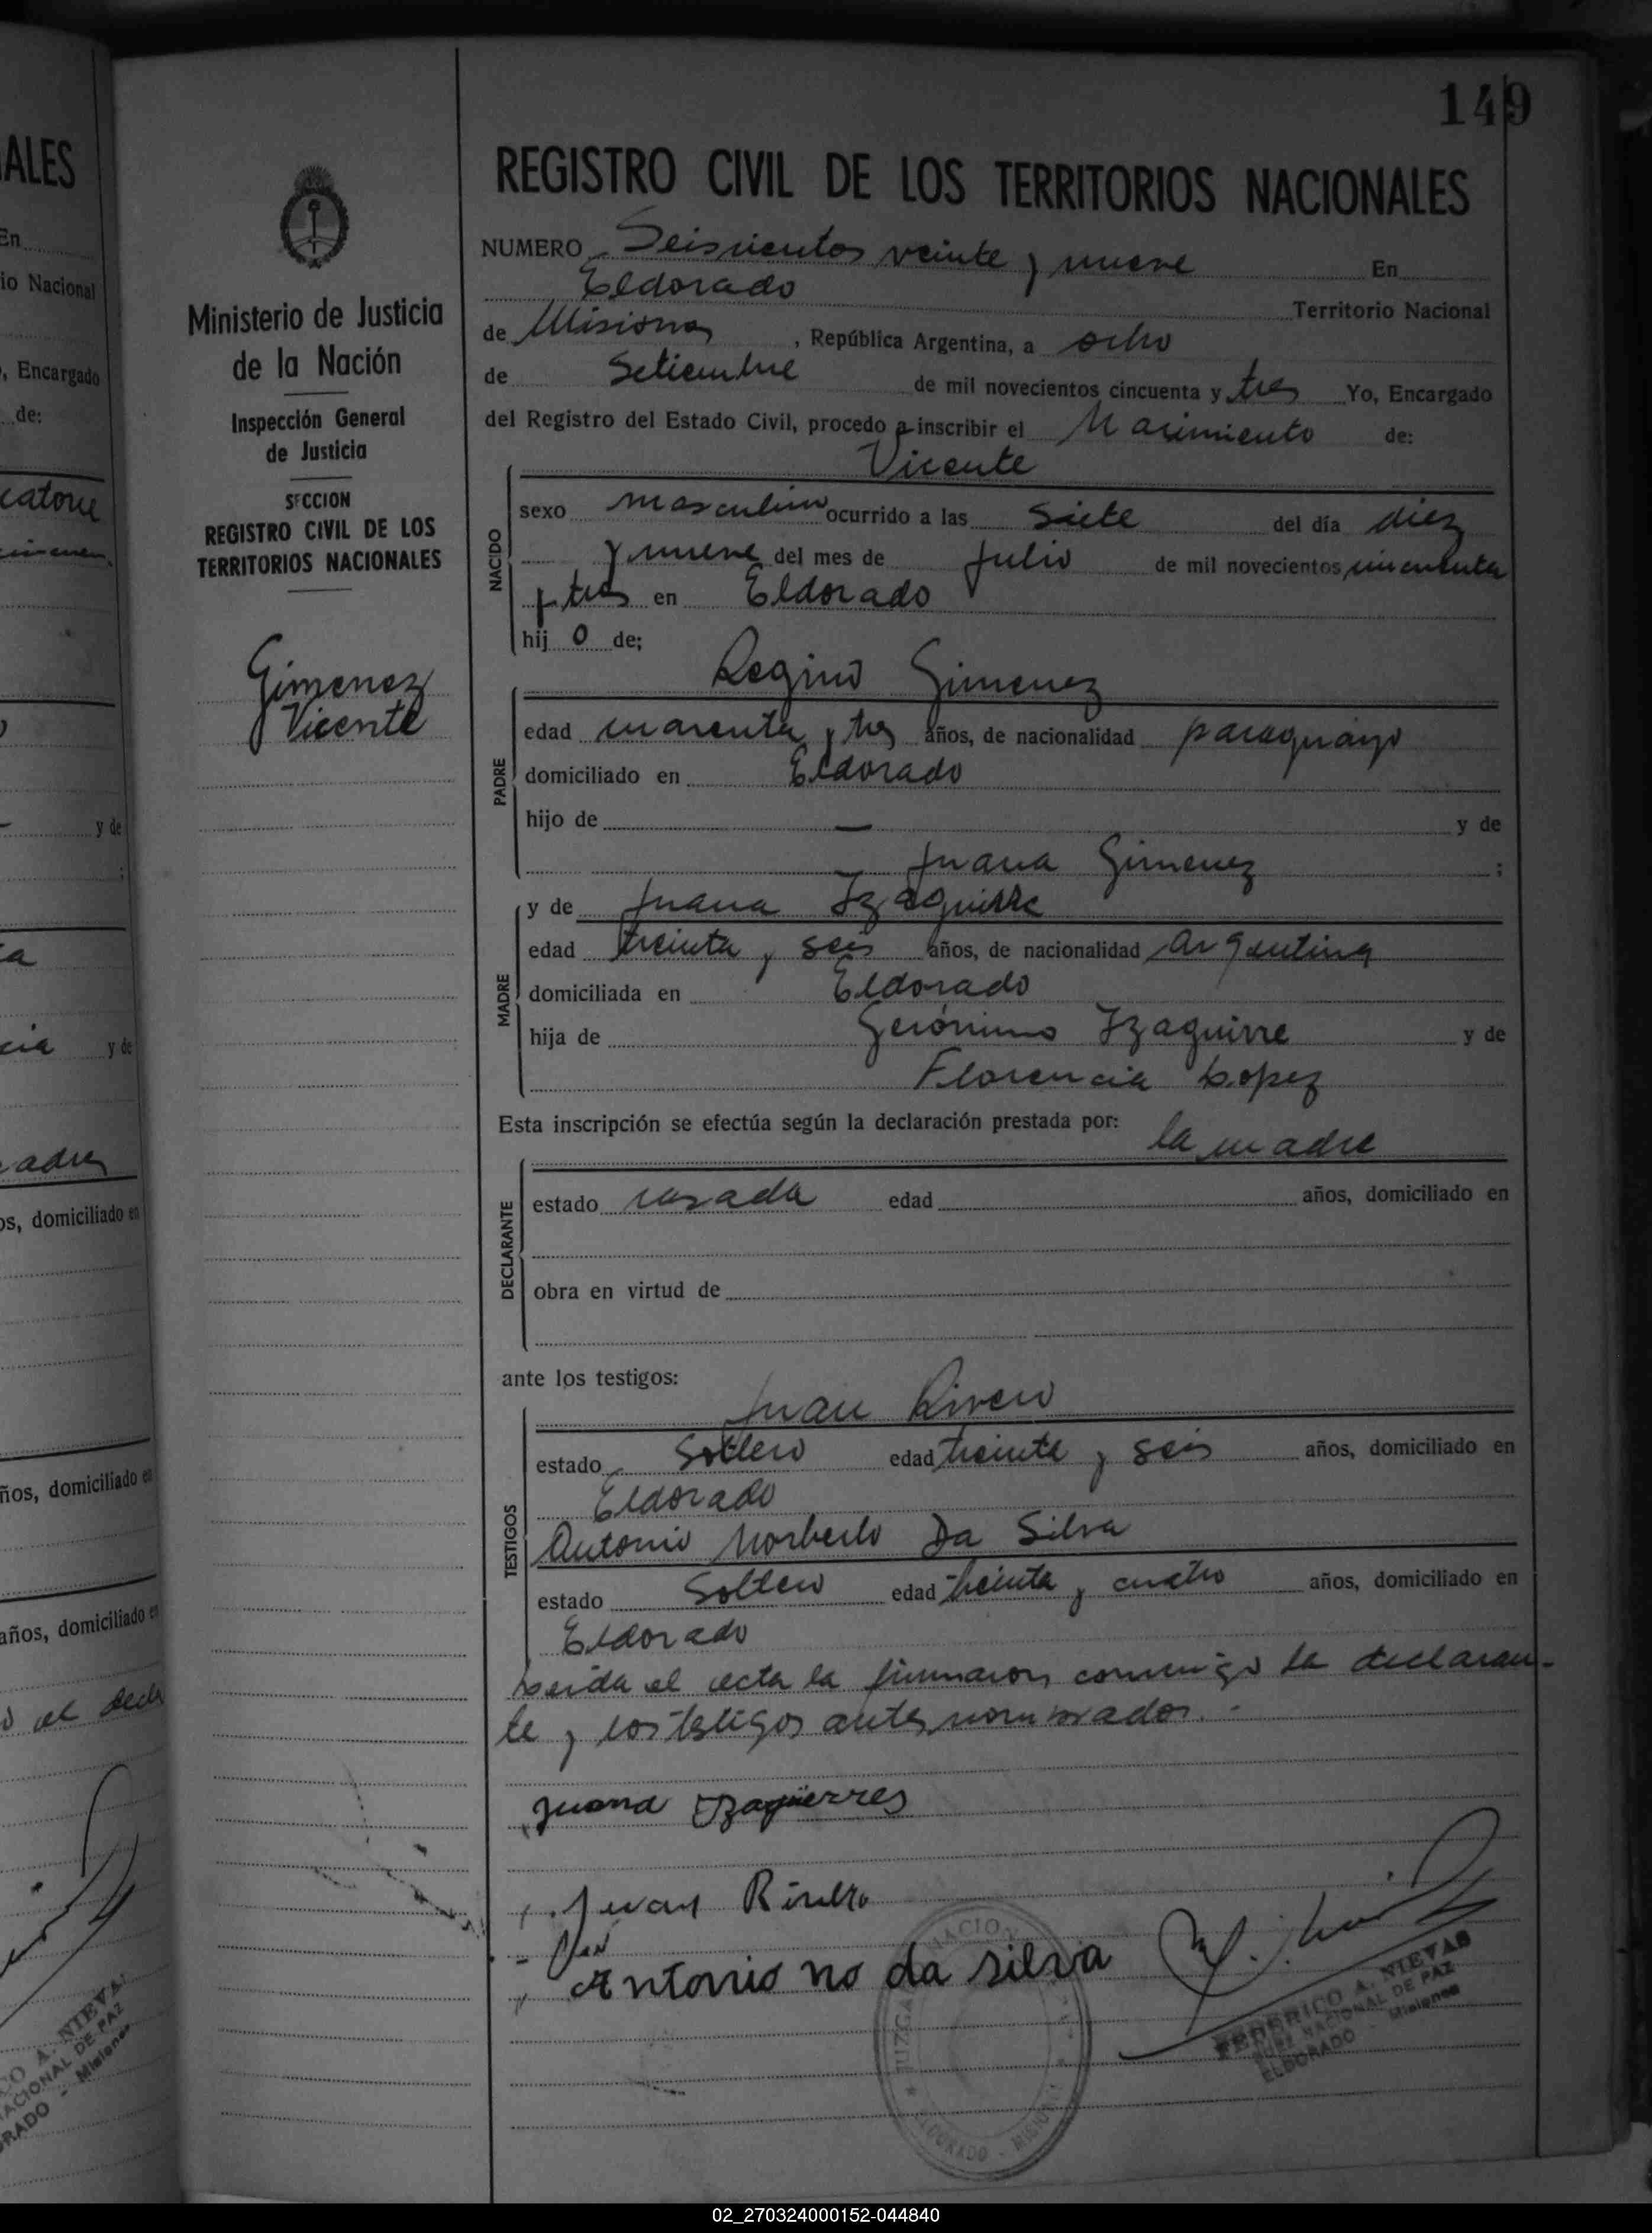 149
REGISTRO CIVIL DE LOS TERRITORIOS NACIONALES
NUMERO Seiscientos veinte y nueve En
Eldorado Territorio Nacional
de Misiones, República Argentina, a ocho
de Setiembre de mil novecientos cincuenta y tres Yo, Encargado
del Registro del Estado Civil, procedo a inscribir el Nacimiento de:
Vicente
NACIDO
sexo masculino ocurrido a las Siete del día diez
y nueve del mes de Julio de mil novecientos cincuenta
y tres en Eldorado
hij o de;
Regino Gimenez
PADRE
edad cuarenta y tres años, de nacionalidad paraguayo
domiciliado en Eldorado
hijo de — y de
Juana Gimenez ;
MADRE
y de Juana Izaguirre
edad treinta y seis años, de nacionalidad Argentina
domiciliada en Eldorado
hija de Gerónimo Izaguirre y de
Florencia Lopez
Esta inscripción se efectúa según la declaración prestada por:
la madre
DECLARANTE
estado casada edad años, domiciliado en
obra en virtud de
ante los testigos:
Juan Rivero
TESTIGOS
estado Soltero edad treinta y seis años, domiciliado en
Eldorado
Antonio Norberto Da Silva
estado Soltero edad treinta y cuatro años, domiciliado en
Eldorado
Leida el acta la firmaron conmigo la declaran-
te y los testigos antes nombrados. -
Juana Izaguerres
Juan Rivero
Antonio no da silva
FEDERICO A. NIEVAS
JUEZ NACIONAL DE PAZ
ELDORADO - Misiones
Ministerio de Justicia
de la Nación
Inspección General
de Justicia
SECCION
REGISTRO CIVIL DE LOS
TERRITORIOS NACIONALES
Gimenez
Vicente
ALES
En
io Nacional
, Encargado
de:
catorce
y de
y de
adre
os, domiciliado en
ños, domiciliado en
años, domiciliado en
02_270324000152-044840